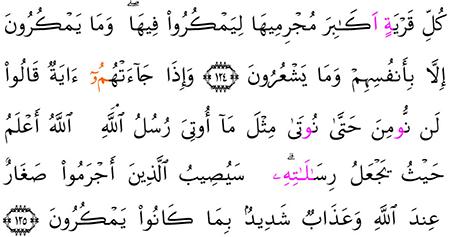 كُلِّ قَرْيَةٍ اَكَٰبِرَ مُجْرِمِيهَا لِيَمْكُرُوا۟ فِيهَا ۖ وَمَا يَمْكُرُونَ
إِلَّا بِأَنفُسِهِمْ وَمَا يَشْعُرُونَ ١٢٤ وَإِذَا جَآءَتْهُمُۥٓ ءَايَةٌ قَالُوا۟
لَن نُّومِنَ حَتَّىٰ نُوتَىٰ مِثْلَ مَآ أُوتِىَ رُسُلُ ٱللَّهِ ۘ ٱللَّهُ أَعْلَمُ
حَيْثُ يَجْعَلُ رِسَٰلَٰتِهِۦ ۗ سَيُصِيبُ ٱلَّذِينَ أَجْرَمُوا۟ صَغَارٌ
عِندَ ٱللَّهِ وَعَذَابٌ شَدِيدٌۢ بِمَا كَانُوا۟ يَمْكُرُونَ ١٢٥